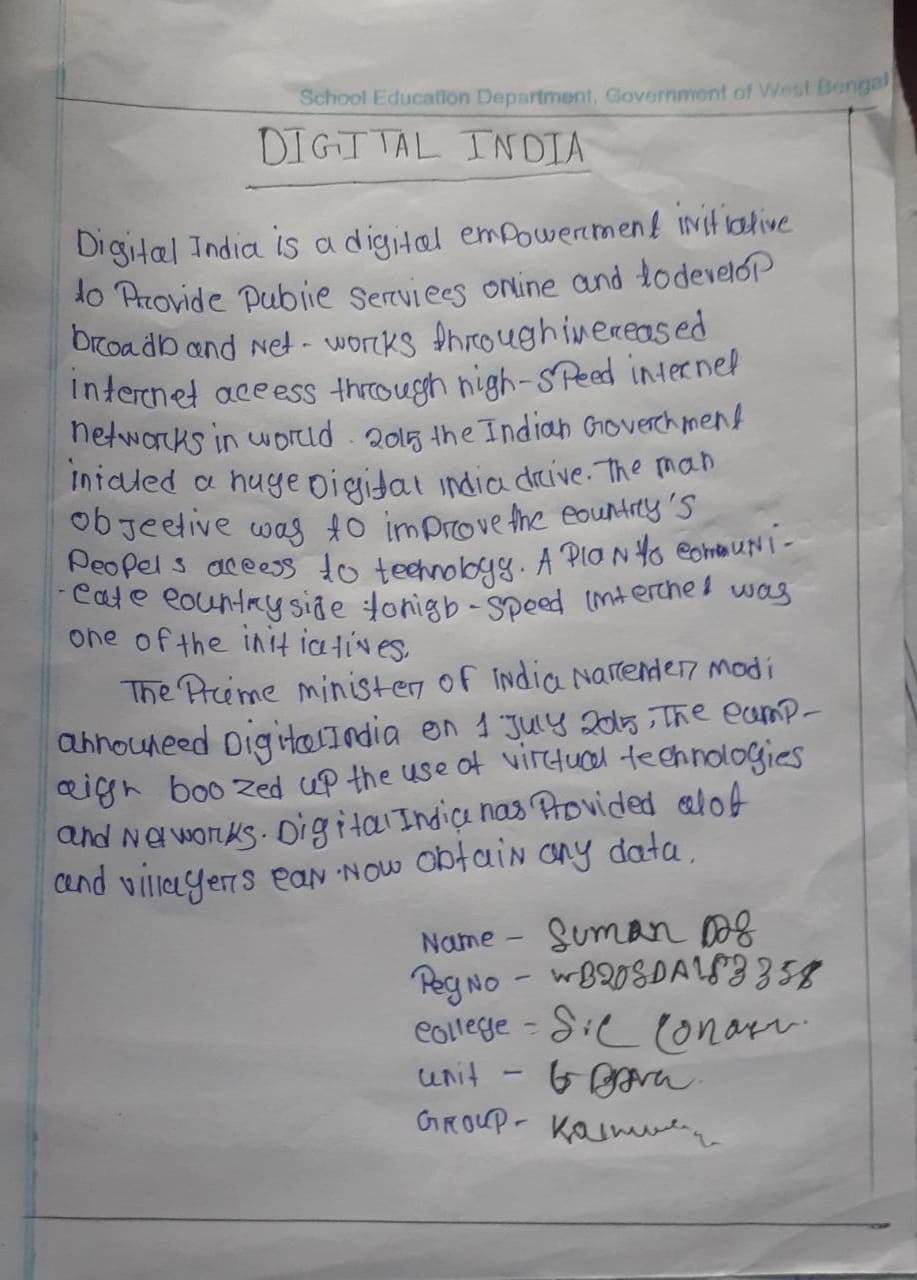 School Education Department, Government of West Bengal
DIGITAL INDIA
Digital India is a digital empowerment initiative
to Provide Public services online and to develop
broadband Net-works through increased
internet access through high-speed internet
networks in world. 2015 the Indian Government
iniated a huge Digital india drive. The man
objective was to improve the country's
Peopels access to technology. A Plan to communi-
-cate countryside to high-speed internet was
one of the initiatives.
The Prime minister of india Narender Modi
announced Digital India on 1 July 2015, The camp-
aign boozed up the use of virtual technologies
and Networks. Digital India has Provided alot
and villagers can Now obtain any data.
Name - Suman Das
Reg No -
college -
unit -
Group -